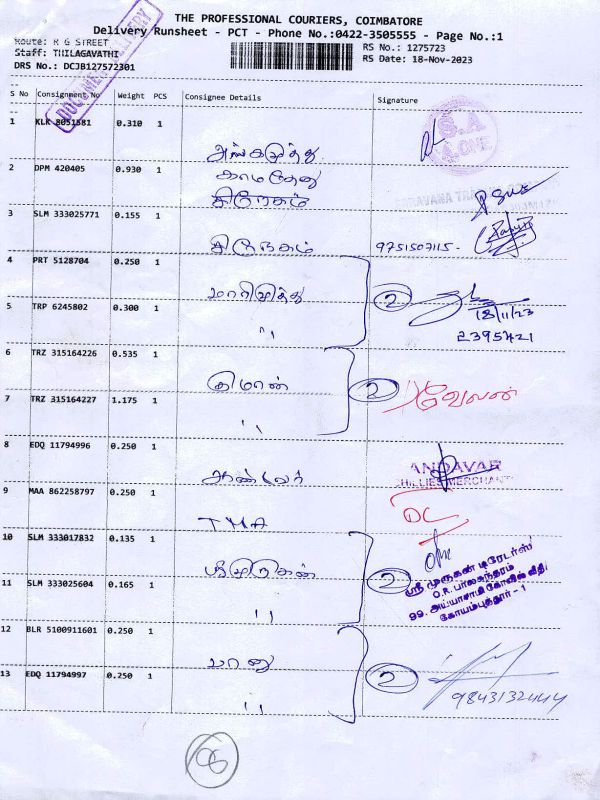 THE PROFESSIONAL COURIERS, COIMBATORE
Delivery Runsheet - PCT - Phone No.:0422-3505555 - Page No.:1
Route: R G STREET
Staff: THILAGAVATHI
DRS No.: DCJB127572301
RS No.: 1275723
RS Date: 18-Nov-2023
S No Consignment No Weight PCS Consignee Details Signature
1 KLK 8051581 0.310 1
S.A
2 DPM 420405 0.930 1 காமதேனு
3 SLM 333025771 0.155 1
9751507115-
4 PRT 5128704 0.250 1 மாரிமுத்து
2
18/11/23
5 TRP 6245802 0.300 1 ,,
2395421
6 TRZ 315164226 0.535 1
2 வேலன்
7 TRZ 315164227 1.175 1 ,,
8 EDQ 11794996 0.250 1
ANDAVAR
CHILLIES MERCHANT
9 MAA 862258797 0.250 1 TMA
10 SLM 333017832 0.135 1 ஸ்ரீமுருகன்
2
ஸ்ரீ முருகன் டிரேடர்ஸ்
O.R. பாலசுந்தரம்
99, அய்யாசாமி கோவில் வீதி,
கோயம்புத்தூர் - 1
11 SLM 333025604 0.165 1 ,,
12 BLR 5100911601 0.250 1 பானு
2
13 EDQ 11794997 0.250 1 ,,
9843132444